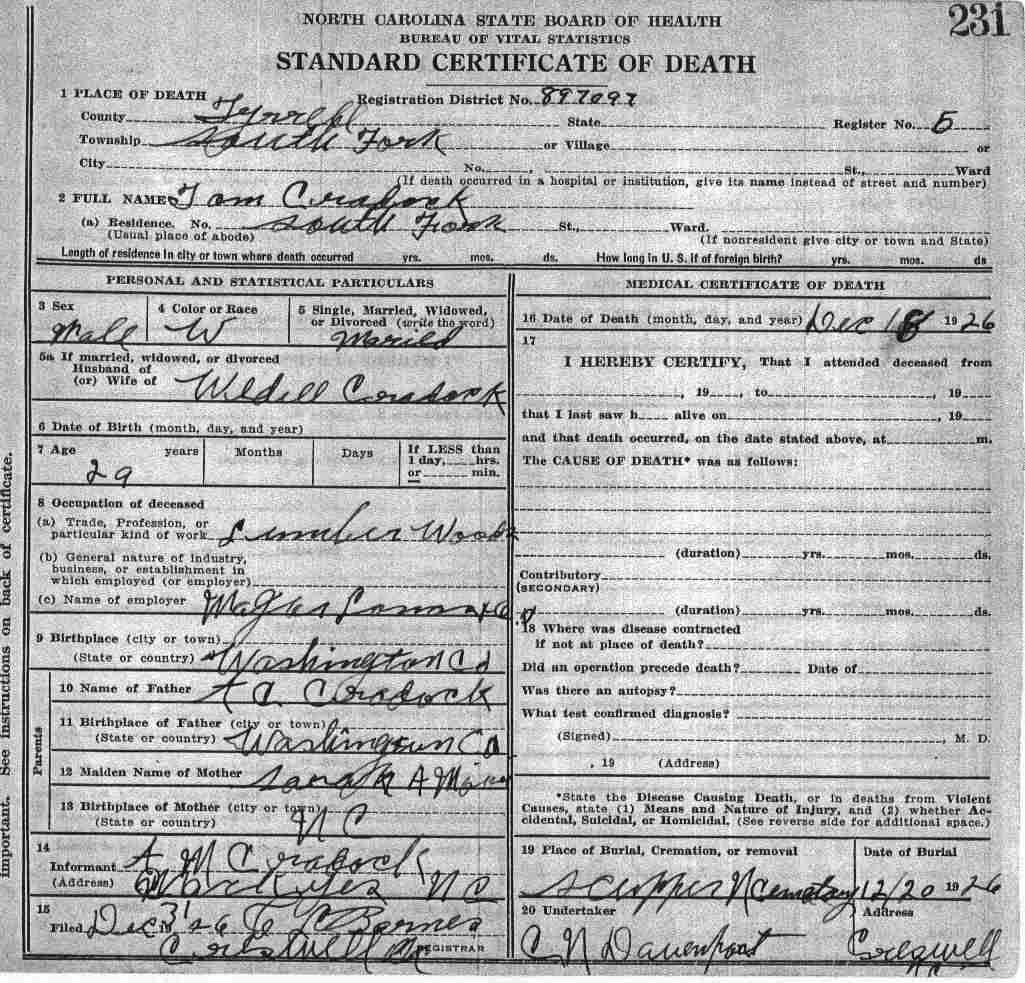 231
NORTH CAROLINA STATE BOARD OF HEALTH
BUREAU OF VITAL STATISTICS
STANDARD CERTIFICATE OF DEATH
1 PLACE OF DEATH Registration District No. 897097
County Tyrrell State Register No. 5
Township South Fork or Village or
City No. , St., Ward
(If death occurred in a hospital or institution, give its name instead of street and number)
2 FULL NAME Tom Cradock
(a) Residence. No. South Fork St., Ward.
(Usual place of abode) (If nonresident give city or town and State)
Length of residence in city or town where death occurred yrs. mos. ds. How long in U. S. if of foreign birth? yrs. mos. ds
PERSONAL AND STATISTICAL PARTICULARS
3 Sex 4 Color or Race 5 Single, Married, Widowed,
or Divorced (write the word)
Mall W Maried
5a If married, widowed, or divorced
Husband of
(or) Wife of Wedell Cradock
6 Date of Birth (month, day, and year)
7 Age years Months Days If LESS than
1 day, hrs.
or min.
29
8 Occupation of deceased
(a) Trade, Profession, or
particular kind of work Lumber Woods
(b) General nature of industry,
business, or establishment in
which employed (or employer)
(c) Name of employer
9 Birthplace (city or town)
(State or country) Washington Co
Parents
10 Name of Father A C Cradock
11 Birthplace of Father (city or town)
(State or country) Washington Co
12 Maiden Name of Mother Sarah A
13 Birthplace of Mother (city or town)
(State or country) N C
14
Informant A M Cradock
(Address) N C
15
Filed Dec 31 26 C L Barnes
Creswell NC REGISTRAR
MEDICAL CERTIFICATE OF DEATH
16 Date of Death (month, day, and year) Dec 18 1926
17
I HEREBY CERTIFY, That I attended deceased from
, 19 , to , 19
that I last saw h alive on , 19
and that death occurred, on the date stated above, at m.
The CAUSE OF DEATH* was as follows:
(duration) yrs. mos. ds.
Contributory
(SECONDARY)
(duration) yrs. mos. ds.
18 Where was disease contracted
if not at place of death?
Did an operation precede death? Date of
Was there an autopsy?
What test confirmed diagnosis?
(Signed) , M. D.
, 19 (Address)
*State the Disease Causing Death, or in deaths from Violent
Causes, state (1) Means and Nature of Injury, and (2) whether Ac-
cidental, Suicidal, or Homicidal. (See reverse side for additional space.)
19 Place of Burial, Cremation, or removal Date of Burial
Scuppernon Cematary 12/20 1926
20 Undertaker Address
C N Davenport Creswell
N C
important. See instructions on back of certificate.